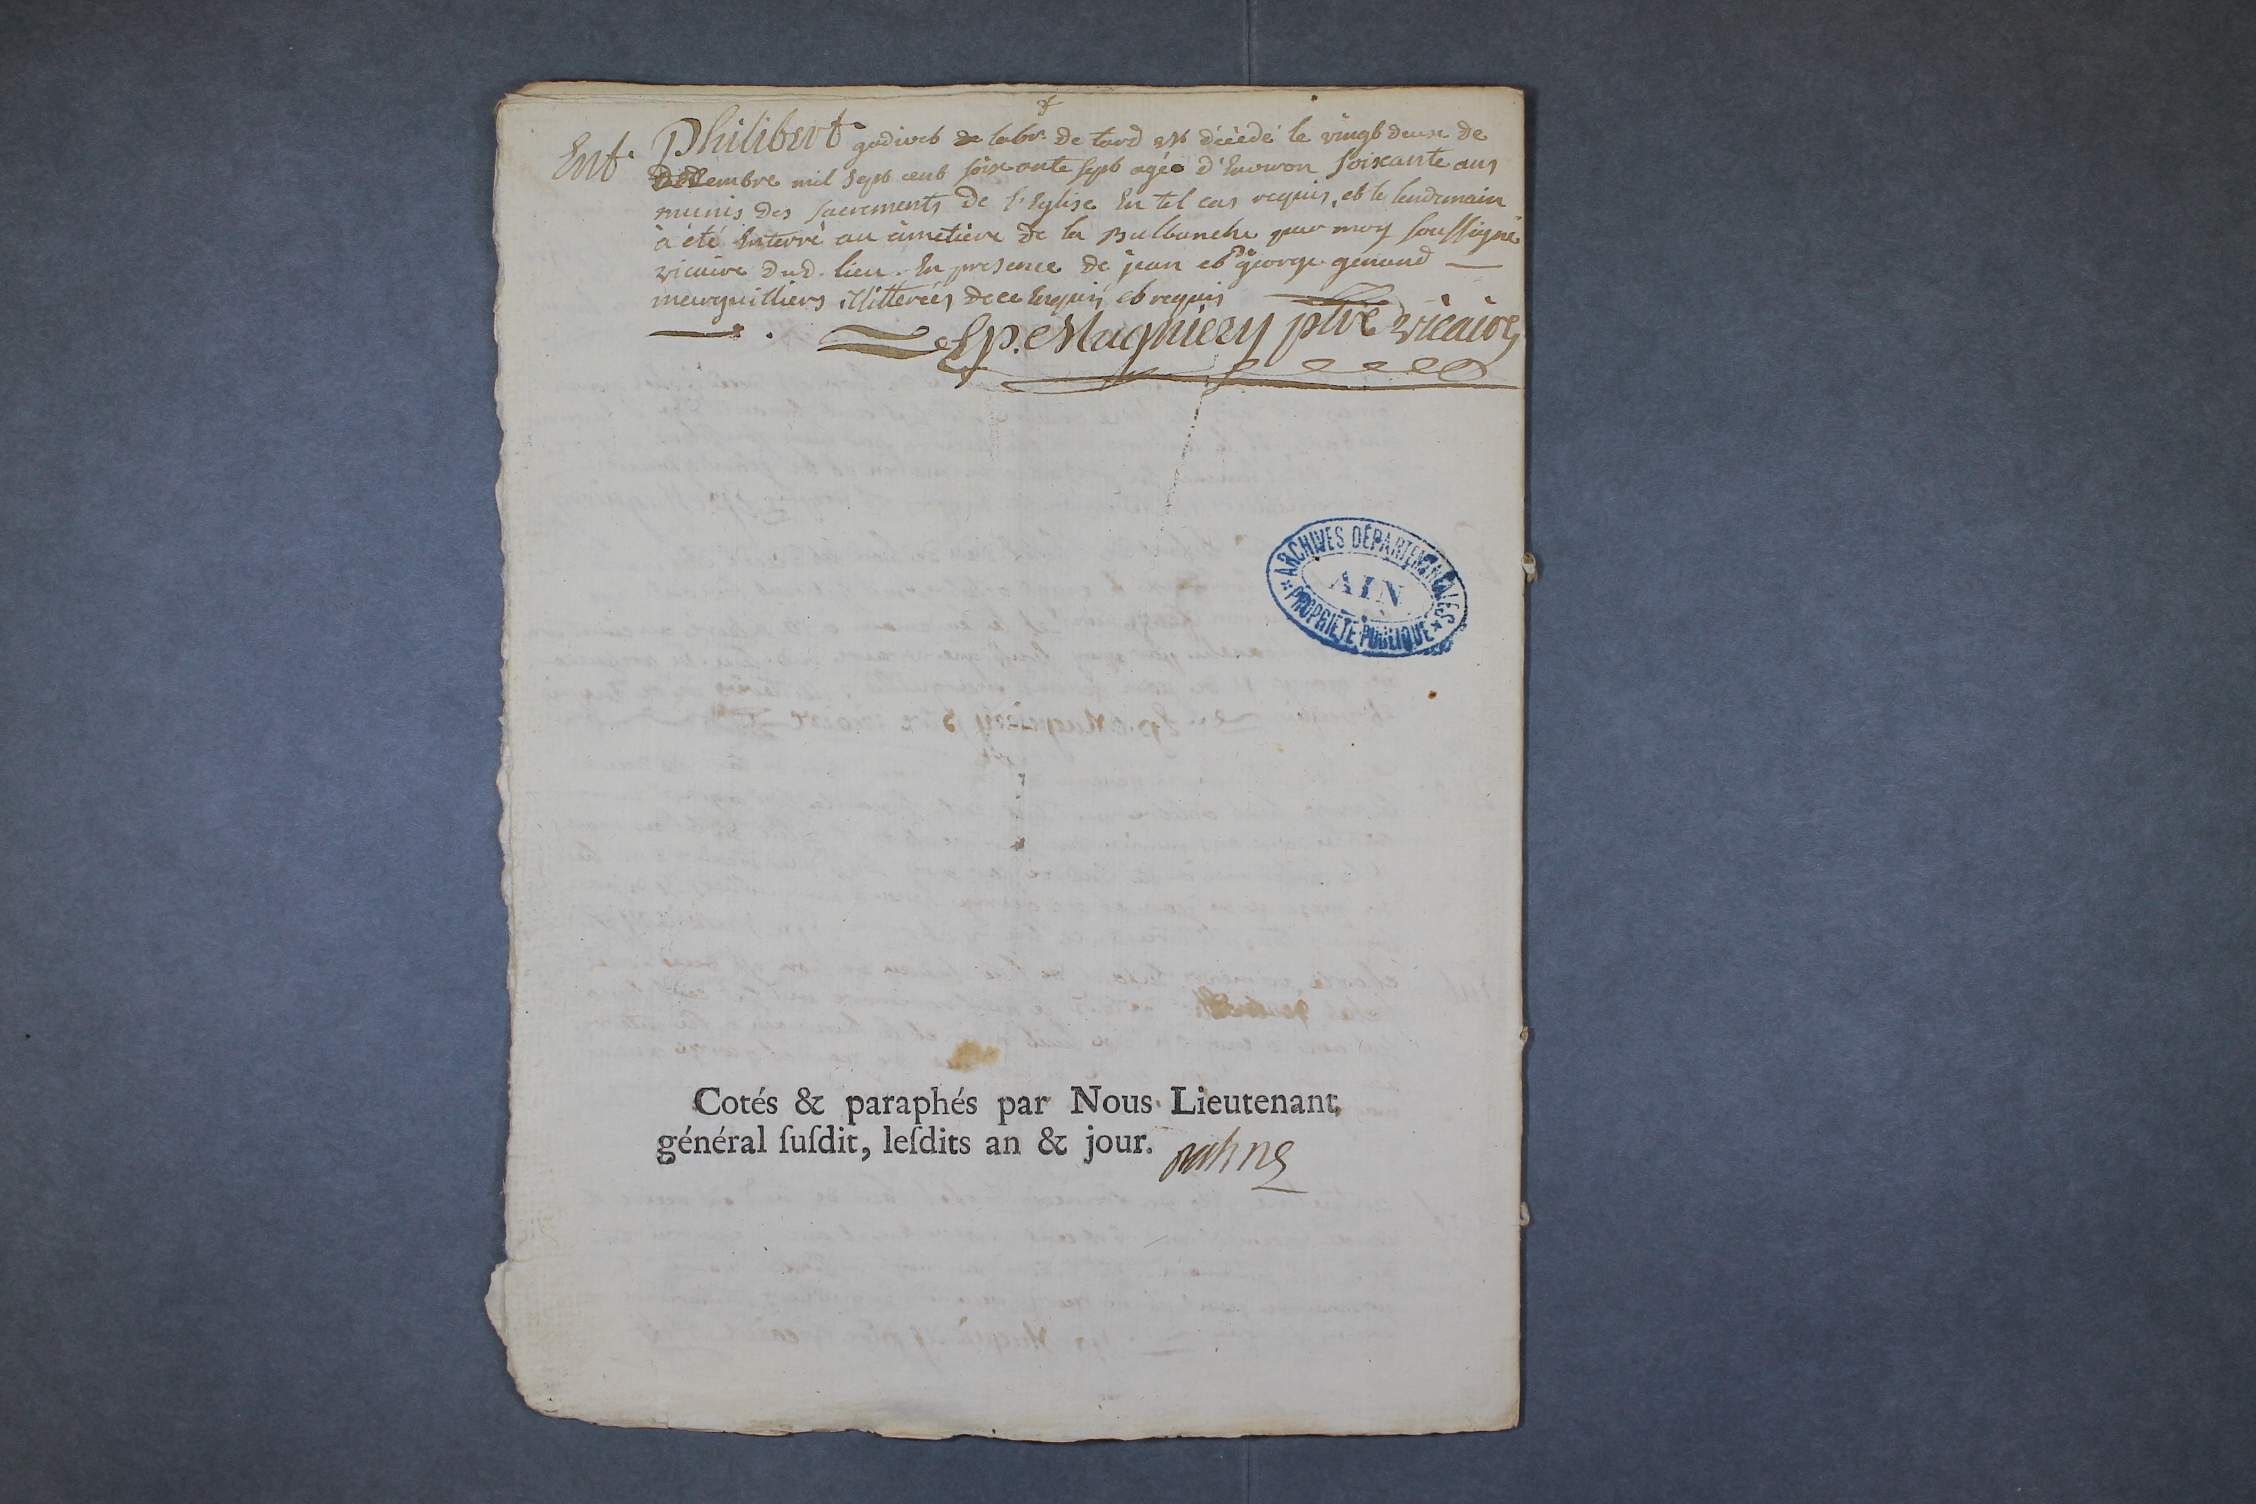 Ent. Philibert godivet de labr de tard est décédé le vingt deuse de
décembre mil sept cent soixante sept agée d'Environ soixante ans
munis des sacrements de l'Eglise En tel cas requis, et le lendemain
à été Enterré au cimetiere de la Balbanche par moy soussigné
vicaire dud. lieu. En presence de jean et george genand
marguilliers illiterés de ce Enquis et requis
Magniery ptre vicaire
ARCHIVES DÉPARTEMENTALES
AIN
PROPRIÉTÉ PUBLIQUE
Cotés & paraphés par Nous Lieutenant
général ſuſdit, leſdits an & jour.